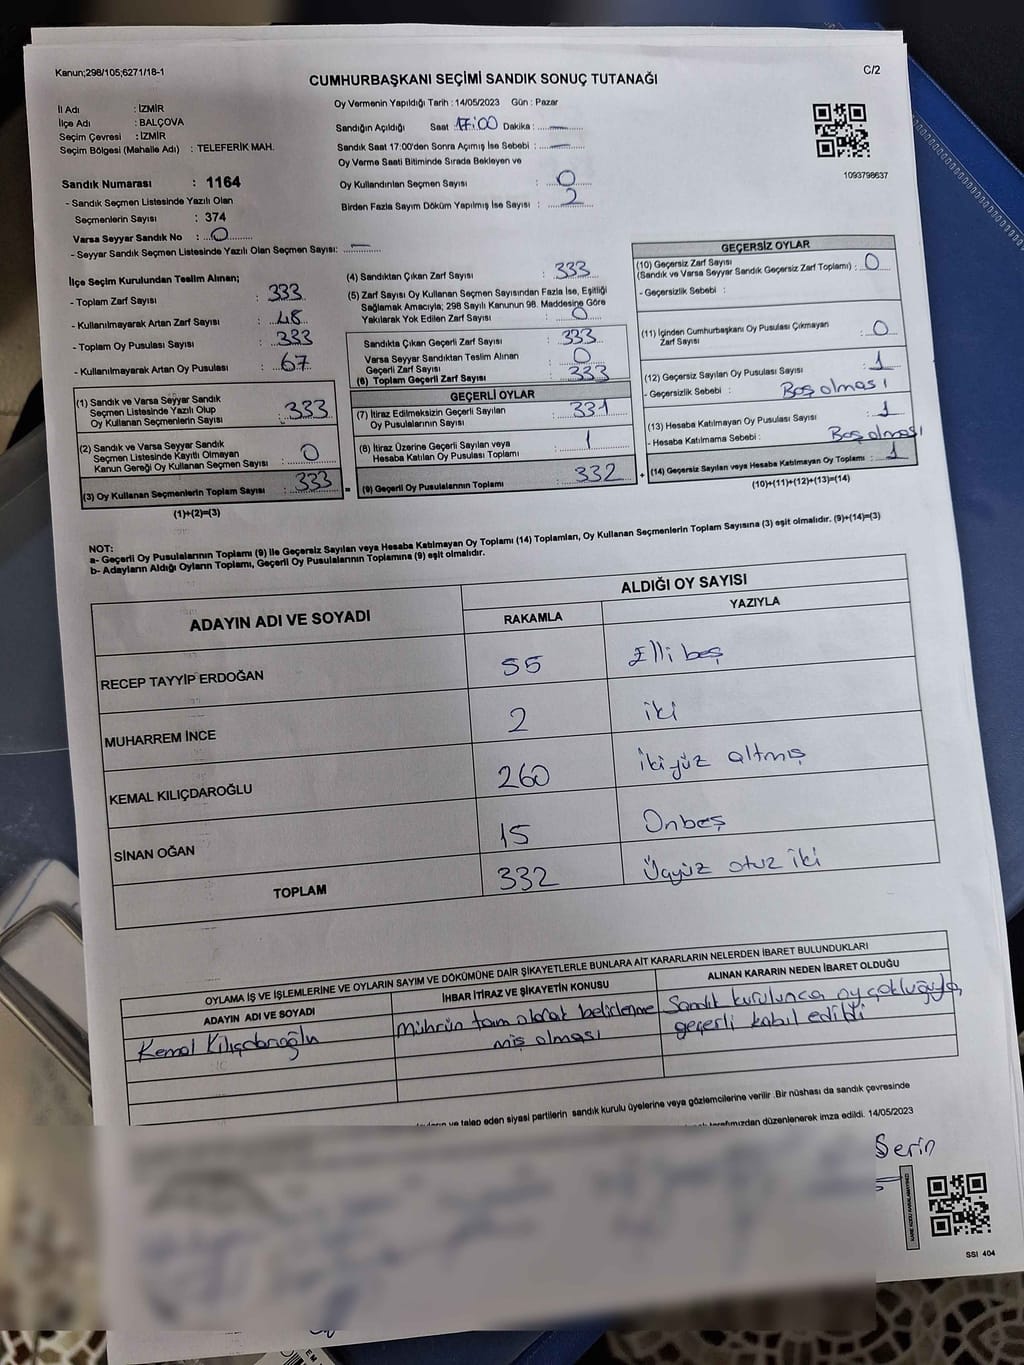 Kanun;298/105;6271/18-1
C/2
CUMHURBAŞKANI SEÇİMİ SANDIK SONUÇ TUTANAĞI
İl Adı : İZMİR
İlçe Adı : BALÇOVA
Seçim Çevresi : İZMİR
Seçim Bölgesi (Mahalle Adı) : TELEFERİK MAH.
Oy Vermenin Yapıldığı Tarih : 14/05/2023 Gün : Pazar
Sandığın Açıldığı Saat 17:00 Dakika : —
Sandık Saat 17:00'den Sonra Açımış İse Sebebi : —
Oy Verme Saati Bitiminde Sırada Bekleyen ve
Oy Kullandırılan Seçmen Sayısı : 0
Birden Fazla Sayım Döküm Yapılmış İse Sayısı : 2
1093798637
Sandık Numarası : 1164
- Sandık Seçmen Listesinde Yazılı Olan
Seçmenlerin Sayısı : 374
Varsa Seyyar Sandık No : 0
- Seyyar Sandık Seçmen Listesinde Yazılı Olan Seçmen Sayısı: —
İlçe Seçim Kurulundan Teslim Alınan;
- Toplam Zarf Sayısı : 333
- Kullanılmayarak Artan Zarf Sayısı : 48
- Toplam Oy Pusulası Sayısı : 333
- Kullanılmayarak Artan Oy Pusulası : 67
(1) Sandık ve Varsa Seyyar Sandık
Seçmen Listesinde Yazılı Olup
Oy Kullanan Seçmenlerin Sayısı : 333
(2) Sandık ve Varsa Seyyar Sandık
Seçmen Listesinde Kayıtlı Olmayan
Kanun Gereği Oy Kullanan Seçmen Sayısı : 0
(3) Oy Kullanan Seçmenlerin Toplam Sayısı : 333
(1)+(2)=(3)
(4) Sandıktan Çıkan Zarf Sayısı : 333
(5) Zarf Sayısı Oy Kullanan Seçmen Sayısından Fazla İse, Eşitliği
Sağlamak Amacıyla; 298 Sayılı Kanunun 98. Maddesine Göre
Yakılarak Yok Edilen Zarf Sayısı : 0
Sandıkta Çıkan Geçerli Zarf Sayısı : 333
Varsa Seyyar Sandıktan Teslim Alınan
Geçerli Zarf Sayısı : 0
(6) Toplam Geçerli Zarf Sayısı : 333
GEÇERLİ OYLAR
(7) İtiraz Edilmeksizin Geçerli Sayılan
Oy Pusulasının Sayısı : 331
(8) İtiraz Üzerine Geçerli Sayılan veya
Hesaba Katılan Oy Pusulası Toplamı : 1
= (9) Geçerli Oy Pusulalarının Toplamı : 332
GEÇERSİZ OYLAR
(10) Geçersiz Zarf Sayısı
(Sandık ve Varsa Seyyar Sandık Geçersiz Zarf Toplamı) : 0
- Geçersizlik Sebebi :
(11) İçinden Cumhurbaşkanı Oy Pusulası Çıkmayan
Zarf Sayısı : 0
(12) Geçersiz Sayılan Oy Pusulası Sayısı : 1
- Geçersizlik Sebebi : Boş olması
(13) Hesaba Katılmayan Oy Pusulası Sayısı : 1
- Hesaba Katılmama Sebebi : Boş olması
+ (14) Geçersiz Sayılan veya Hesaba Katılmayan Oy Toplamı : 1
(10)+(11)+(12)+(13)=(14)
NOT:
a- Geçerli Oy Pusulalarının Toplamı (9) ile Geçersiz Sayılan veya Hesaba Katılmayan Oy Toplamı (14) Toplamları, Oy Kullanan Seçmenlerin Toplam Sayısına (3) eşit olmalıdır. (9)+(14)=(3)
b- Adayların Aldığı Oyların Toplamı, Geçerli Oy Pusulalarının Toplamına (9) eşit olmalıdır.
ADAYIN ADI VE SOYADI
ALDIĞI OY SAYISI
RAKAMLA YAZIYLA
RECEP TAYYİP ERDOĞAN 55 Elli beş
MUHARREM İNCE 2 iki
KEMAL KILIÇDAROĞLU 260 ikiyüz altmış
SİNAN OĞAN 15 Onbeş
TOPLAM 332 Üçyüz otuz iki
OYLAMA İŞ VE İŞLEMLERİNE VE OYLARIN SAYIM VE DÖKÜMÜNE DAİR ŞİKAYETLERLE BUNLARA AİT KARARLARIN NELERDEN İBARET BULUNDUKLARI
ADAYIN ADI VE SOYADI
İHBAR İTİRAZ VE ŞİKAYETİN KONUSU
ALINAN KARARIN NEDEN İBARET OLDUĞU
Kemal Kılıçdaroğlu
Mührün tam olarak belirlenme
miş olması
Sandık kurulunca oy çokluğuyla,
geçerli kabul edildi
ve talep eden siyasi partilerin sandık kurulu üyelerine veya gözlemcilerine verilir .Bir nüshası da sandık çevresinde
tarafımızdan düzenlenerek imza edildi. 14/05/2023
Serin
KARE KODU KARALAMAYINIZ!
SSI 404